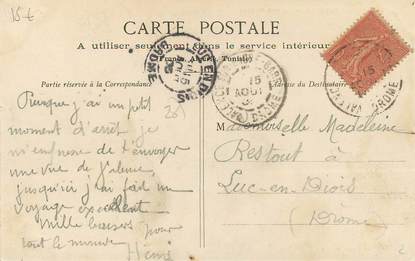 15€
CARTE POSTALE
A utiliser seulement dans le service intérieur
(France, Algérie, Tunisie)
Partie réservée à la Correspondance
Adresse du Destinataire
LUC EN DIOIS
DROME
15
AOUT
DROME
Puisque j'ai un petit
moment d'arrêt je
m'empresse de t'envoyer
une vue de Valence,
jusqu'ici j'ai fait un
voyage excellent
Mille baisers pour
tout le monde
Mademoiselle Madeleine
Restout à
Luc-en-Diois
(Drôme)